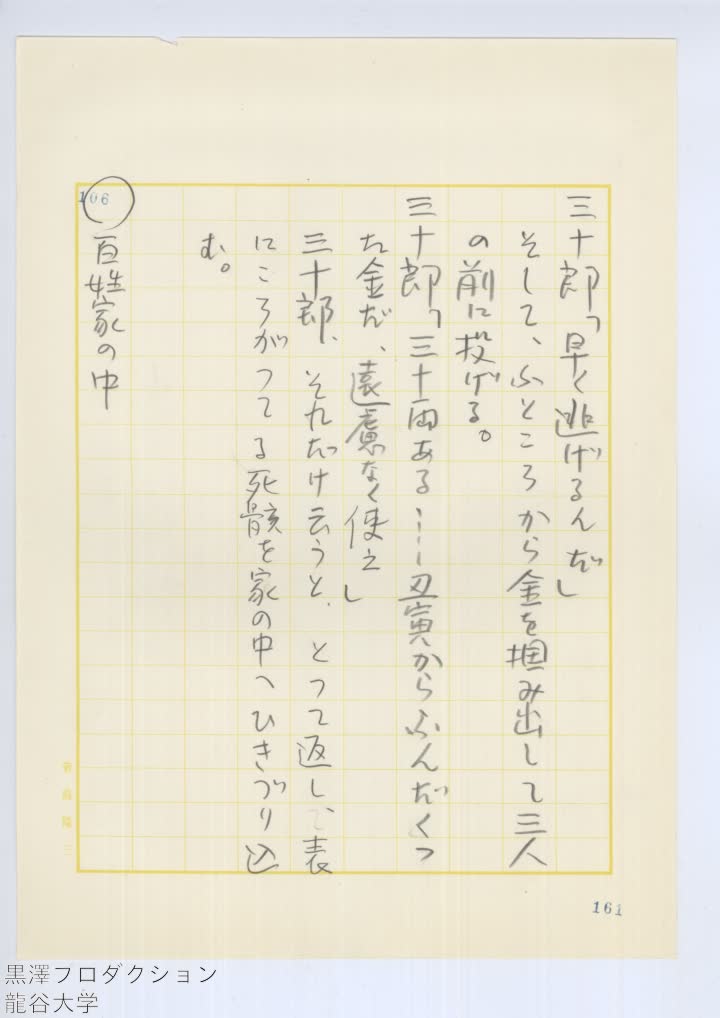 三十郎「早く逃げるんだ」
そして、ふところから金を掴み出して三人
の前に投げる。
三十郎「三十両ある……丑寅からふんだくつ
た金だ、遠慮なく使え」
三十郎、それだけ云うと、とつて返し、表
にころがつてる死骸を家の中へひきづり込
む。
106
百姓家の中
161
黒澤プロダクション
龍谷大学